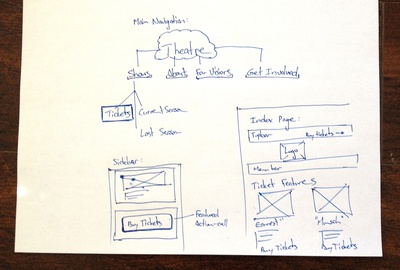 Main Navigation:
Theatre
Shows
About
For Visitors
Get Involved
Tickets
Current Season
Last Season
Sidebar:
Buy Tickets
Featured
Action-call
Index Page:
Topbar
Buy tickets →
Logo
Menu bar
Ticket Features
"Earnest"
Buy Tickets
Buy Tickets